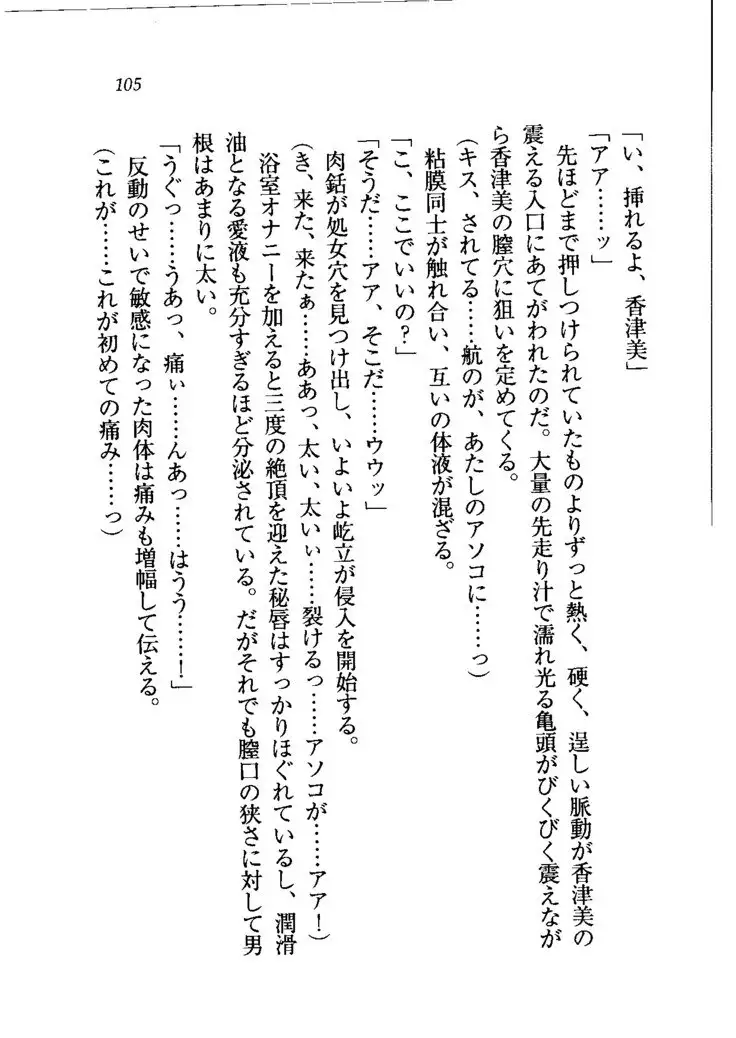 105
「い、挿れるよ、香津美」
「アア……ッ」
先ほどまで押しつけられていたものよりずっと熱く、硬く、逞しい脈動が香津美の
震える入口にあてがわれたのだ。大量の先走り汁で濡れ光る亀頭がびくびく震えなが
ら香津美の膣穴に狙いを定めてくる。
（キス、されてる……航のが、あたしのアソコに……っ）
粘膜同士が触れ合い、互いの体液が混ざる。
「こ、ここでいいの？」
「そうだ……アア、そこだ……ウウッ」
肉銛が処女穴を見つけ出し、いよいよ屹立が侵入を開始する。
（き、来た、来たぁ……ああっ、太い、太いぃ……裂けるっ……アソコが……アア！）
浴室オナニーを加えると三度の絶頂を迎えた秘唇はすっかりほぐれているし、潤滑
油となる愛液も充分すぎるほど分泌されている。だがそれでも膣口の狭さに対して男
根はあまりに太い。
「うぐっ……うあっ、痛ぃ……んあっ……はうう……！」
反動のせいで敏感になった肉体は痛みも増幅して伝える。
（これが……これが初めての痛み……っ）